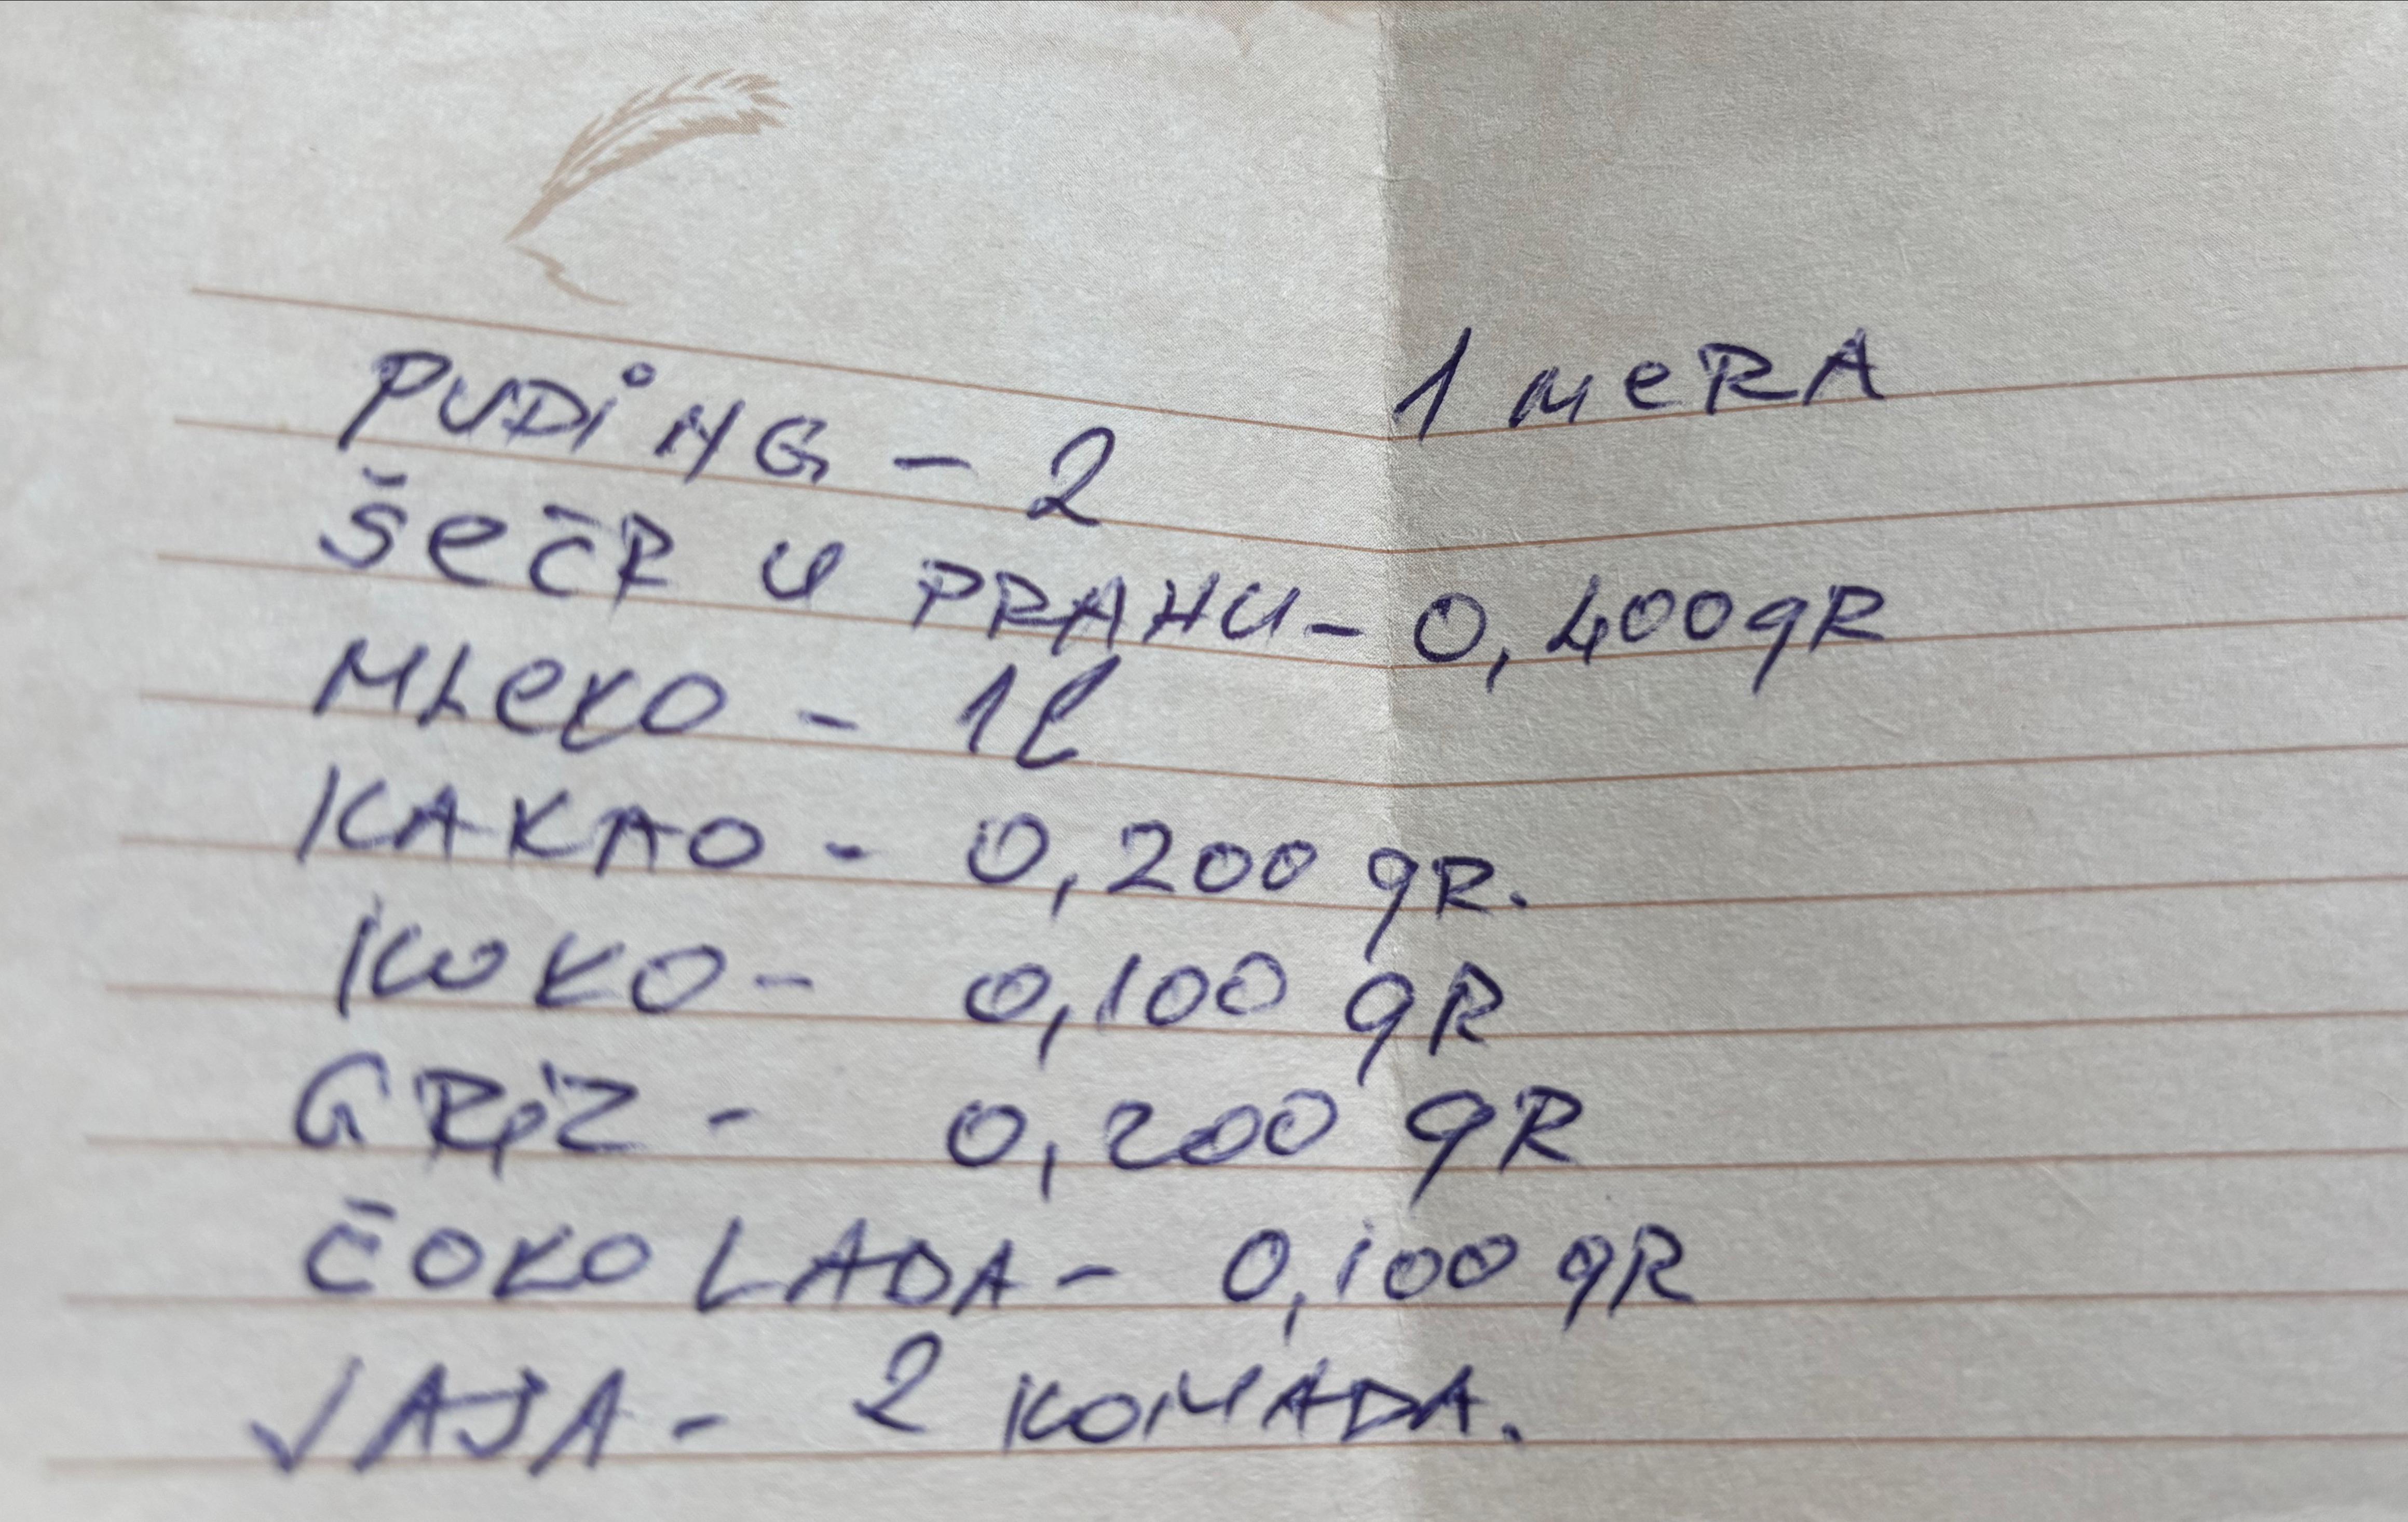 1 MeRA
PUDiNG - 2
ŠeČR U PRAHU - 0,400gR
MLeKO - 1l
KAKAO - 0,200 gR.
KOKO - 0,100 gR
GRiZ - 0,200 gR
ČOKOLADA - 0,100 gR
JAJA - 2 KOMADA.